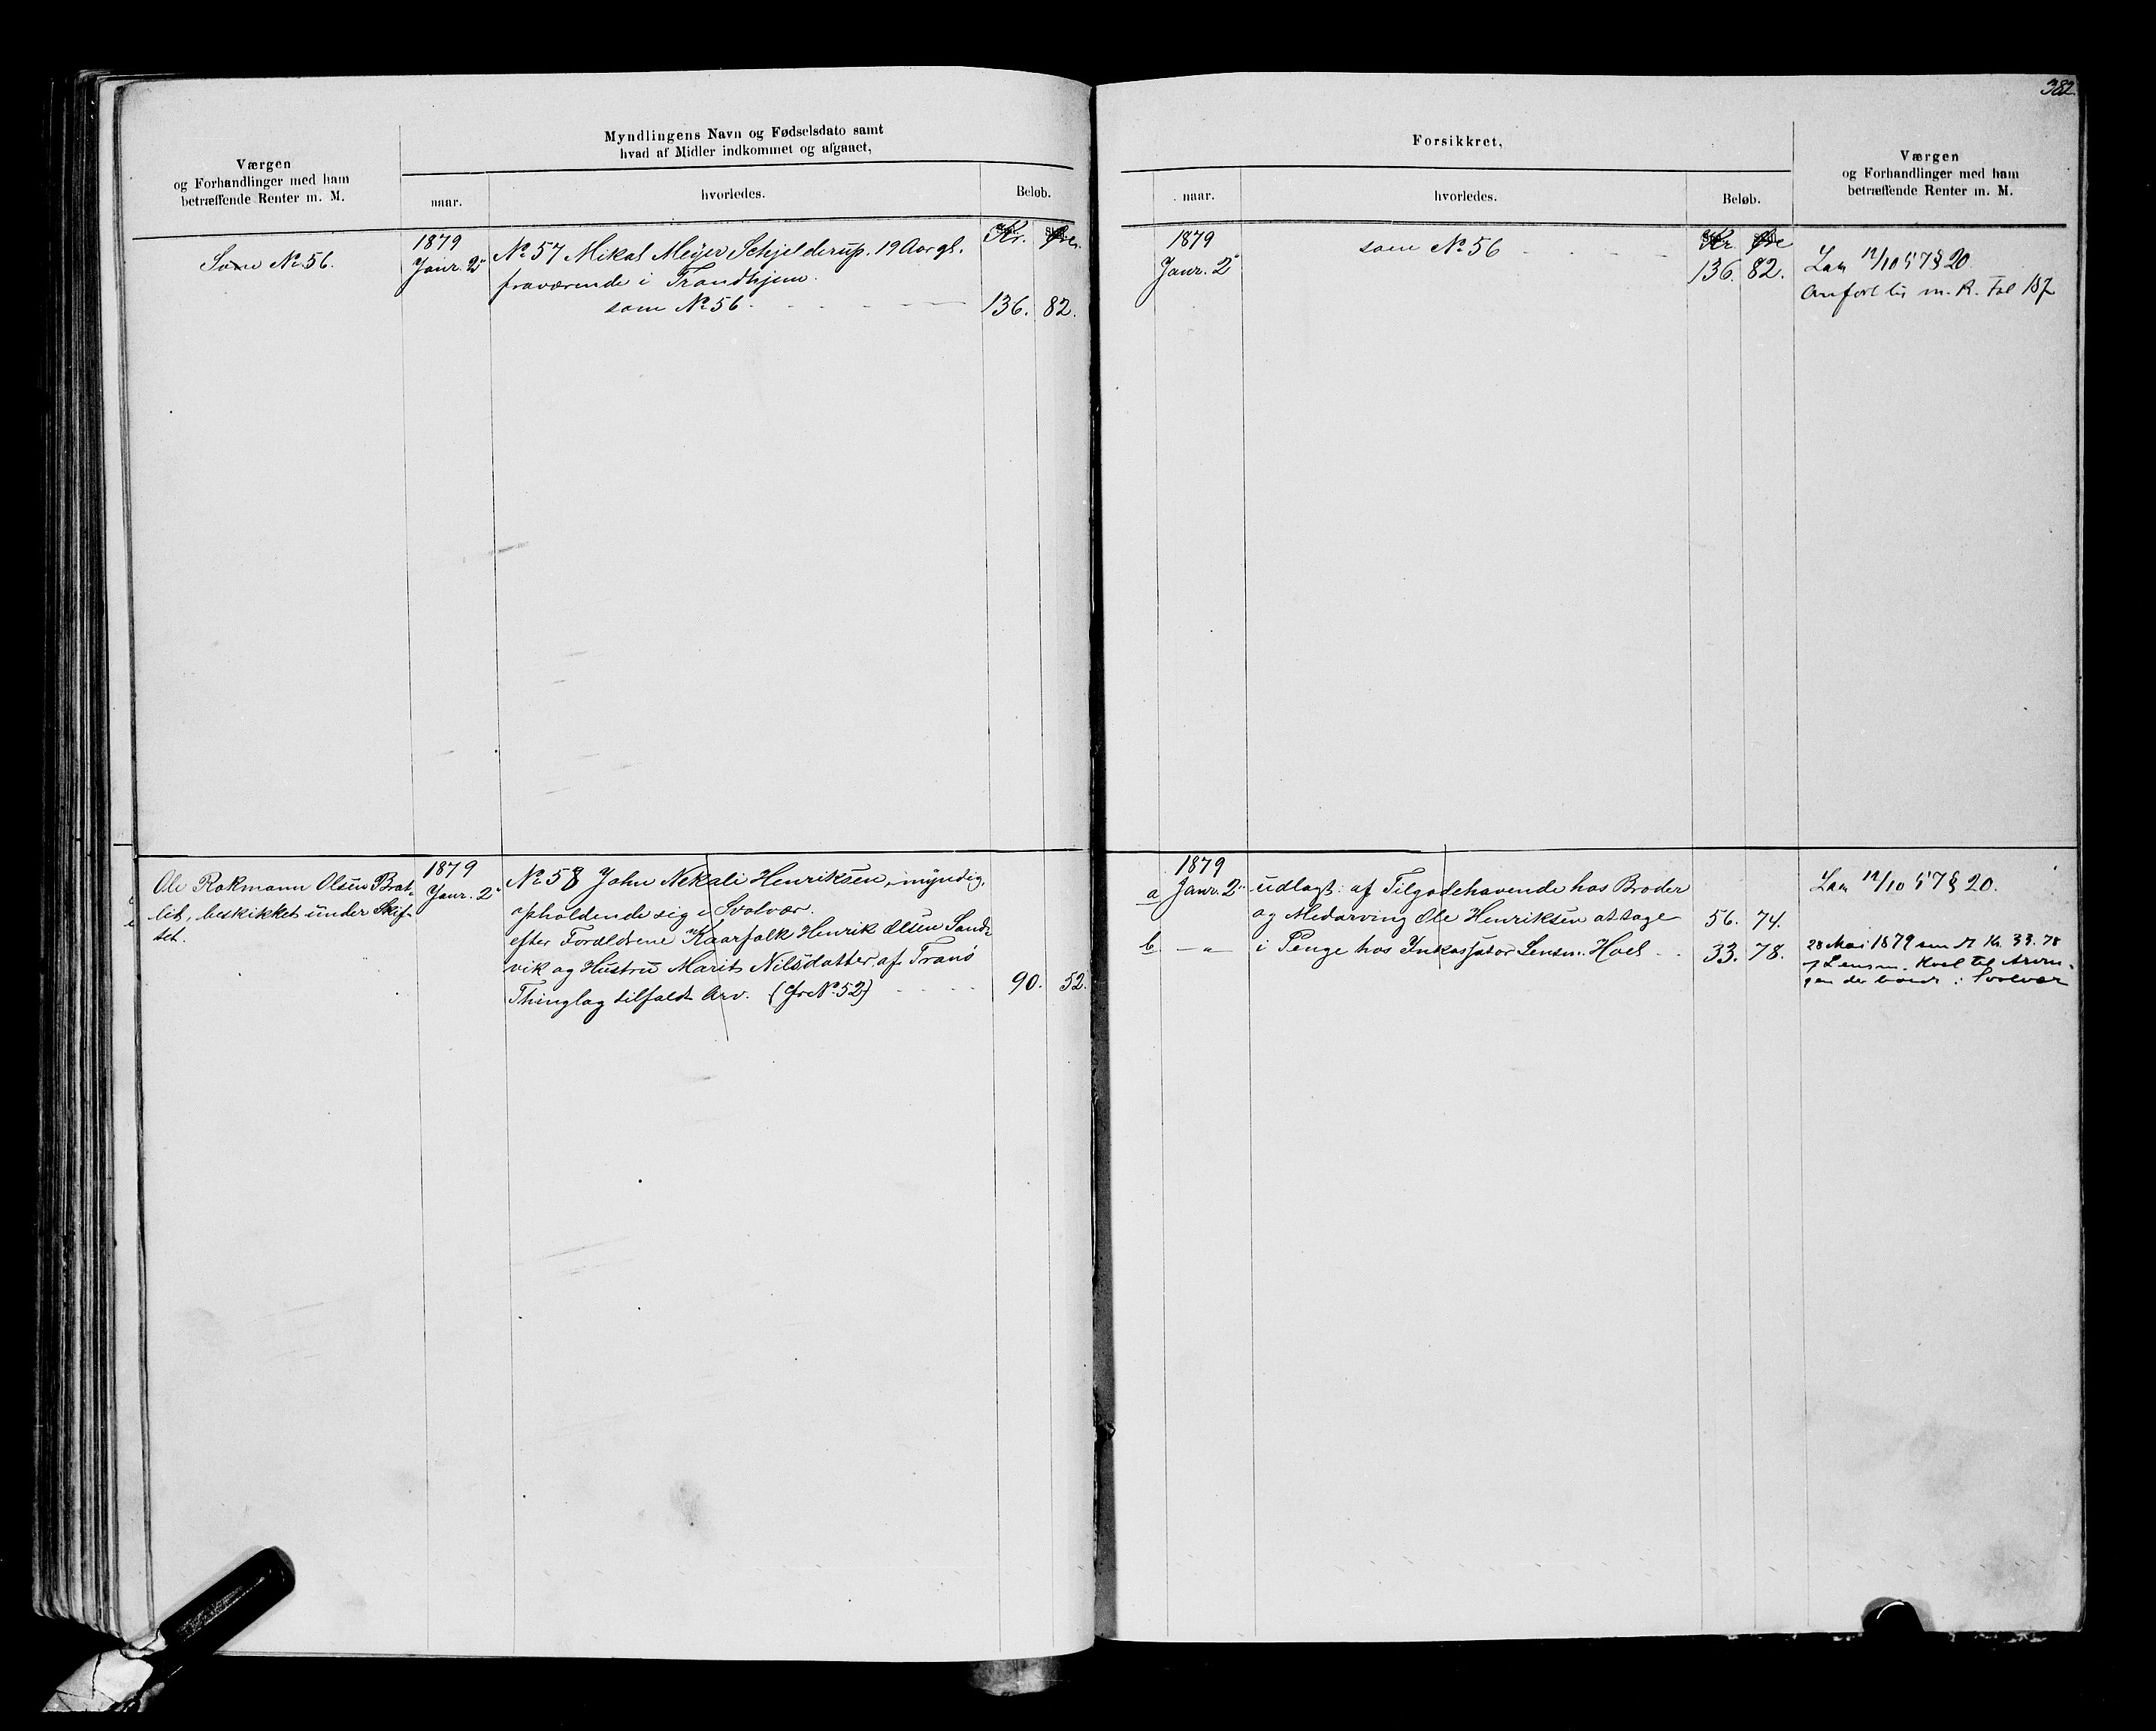 382.
Værgen
og Forhandlinger med ham
betræffende Renter m. M.
Myndlingens Navn og Fødselsdato samt
hvad af Midler indkommet og afgaaet,
naar.
hvorledes.
Beløb.
Kr. Øre.
Som No 56.
1879
Janr. 2
No 57 Mikal Meyer Schjelderup. 19 Aar gl.
fraværende i Trondhjem.
som No 56 136. 82.
Ole Rokmann Olsen Brat-
lid, beskikket under Skif-
tet.
1879
Janr. 2
No 58 John Nekali Henriksen, myndig,
opholdende sig i Svolvær.
efter Forældrene Kaarfolk Henrik Olsen Sand-
vik og Hustru Marit Nilsdatter af Tranø
Thinglag tilfaldt Arv. (cfr No 52) 90. 52.
Forsikkret,
naar.
hvorledes.
Beløb.
Kr. Øre
Værgen
og Forhandlinger med ham
betræffende Renter m. M.
1879
Janr. 2
som No 56
136. 82.
12/10 57 § 20
Anført til m. R. Fol 187
1879
a Janr. 2 udlagt: af Tilgodehavende hos Broder
og Medarving Ole Henriksen at tage 56. 74.
b — " — i Penge hos Inkassator Lensm. Hoel 33. 78.
12/10 57 § 20.
28 Mai 1879 Kr. 33.78
Lensm. Hoel til Arvin-
gen der boede i Svolvær